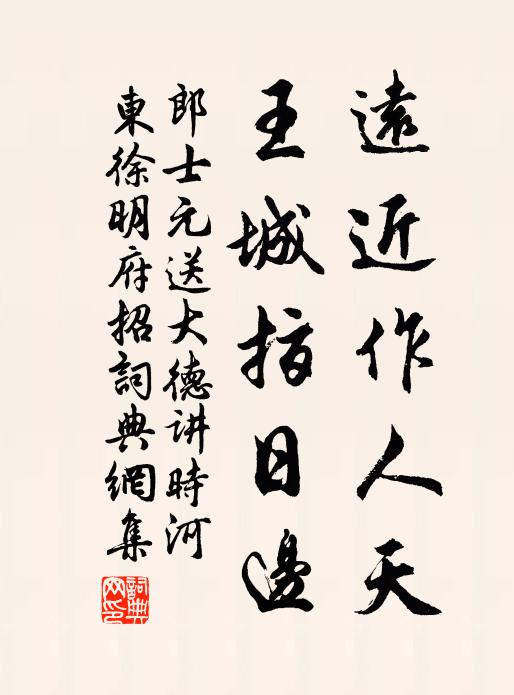 遠近作人天
王城指日邊
郎士元送大德讲時河
東徐明府招詞典網集
詞典网印